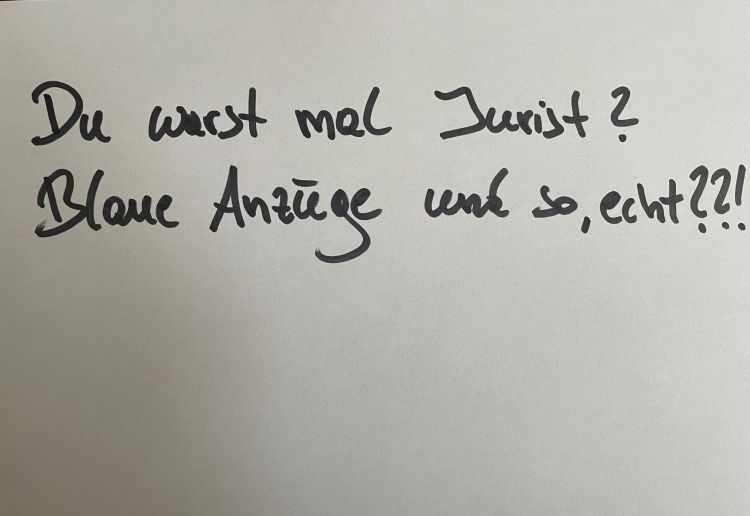 Du warst mal Jurist?
Blaue Anzüge und so, echt??!